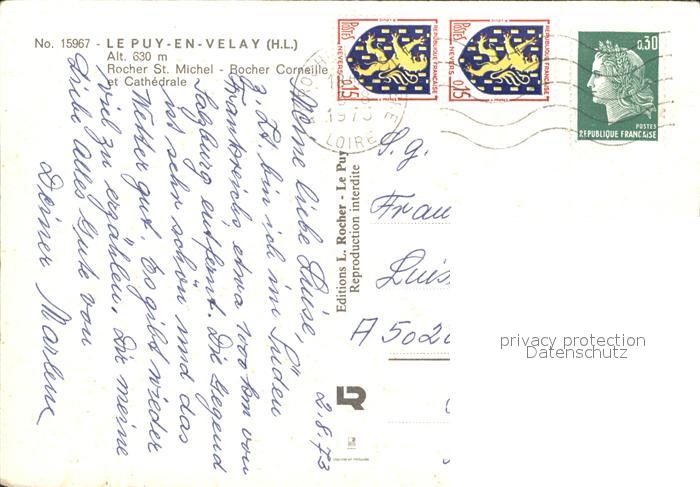 No. 15967 - LE PUY-EN-VELAY (H.L.)
Alt. 630 m
Rocher St. Michel - Rocher Corneille
et Cathédrale
2.8.73
Meine liebe Luise,
z. Zt. bin ich im Süden
Frankreichs etwa 1000 km von
Salzburg entfernt. Die Gegend
ist sehr schön und das
Wetter gut. Es gibt wieder
viel zu erzählen. Dir meine
Liebe alles Gute von
Deiner Marlene
Editions L. Rocher - Le Puy
Reproduction interdite
POSTES
NEVERS
0,15
REPUBLIQUE FRANÇAISE
POSTES
NEVERS
0,15
REPUBLIQUE FRANÇAISE
0,30
POSTES
REPUBLIQUE FRANÇAISE
1973
LOIRE
S.g.
Frau
Luis
A 502
LR
privacy protection
Datenschutz